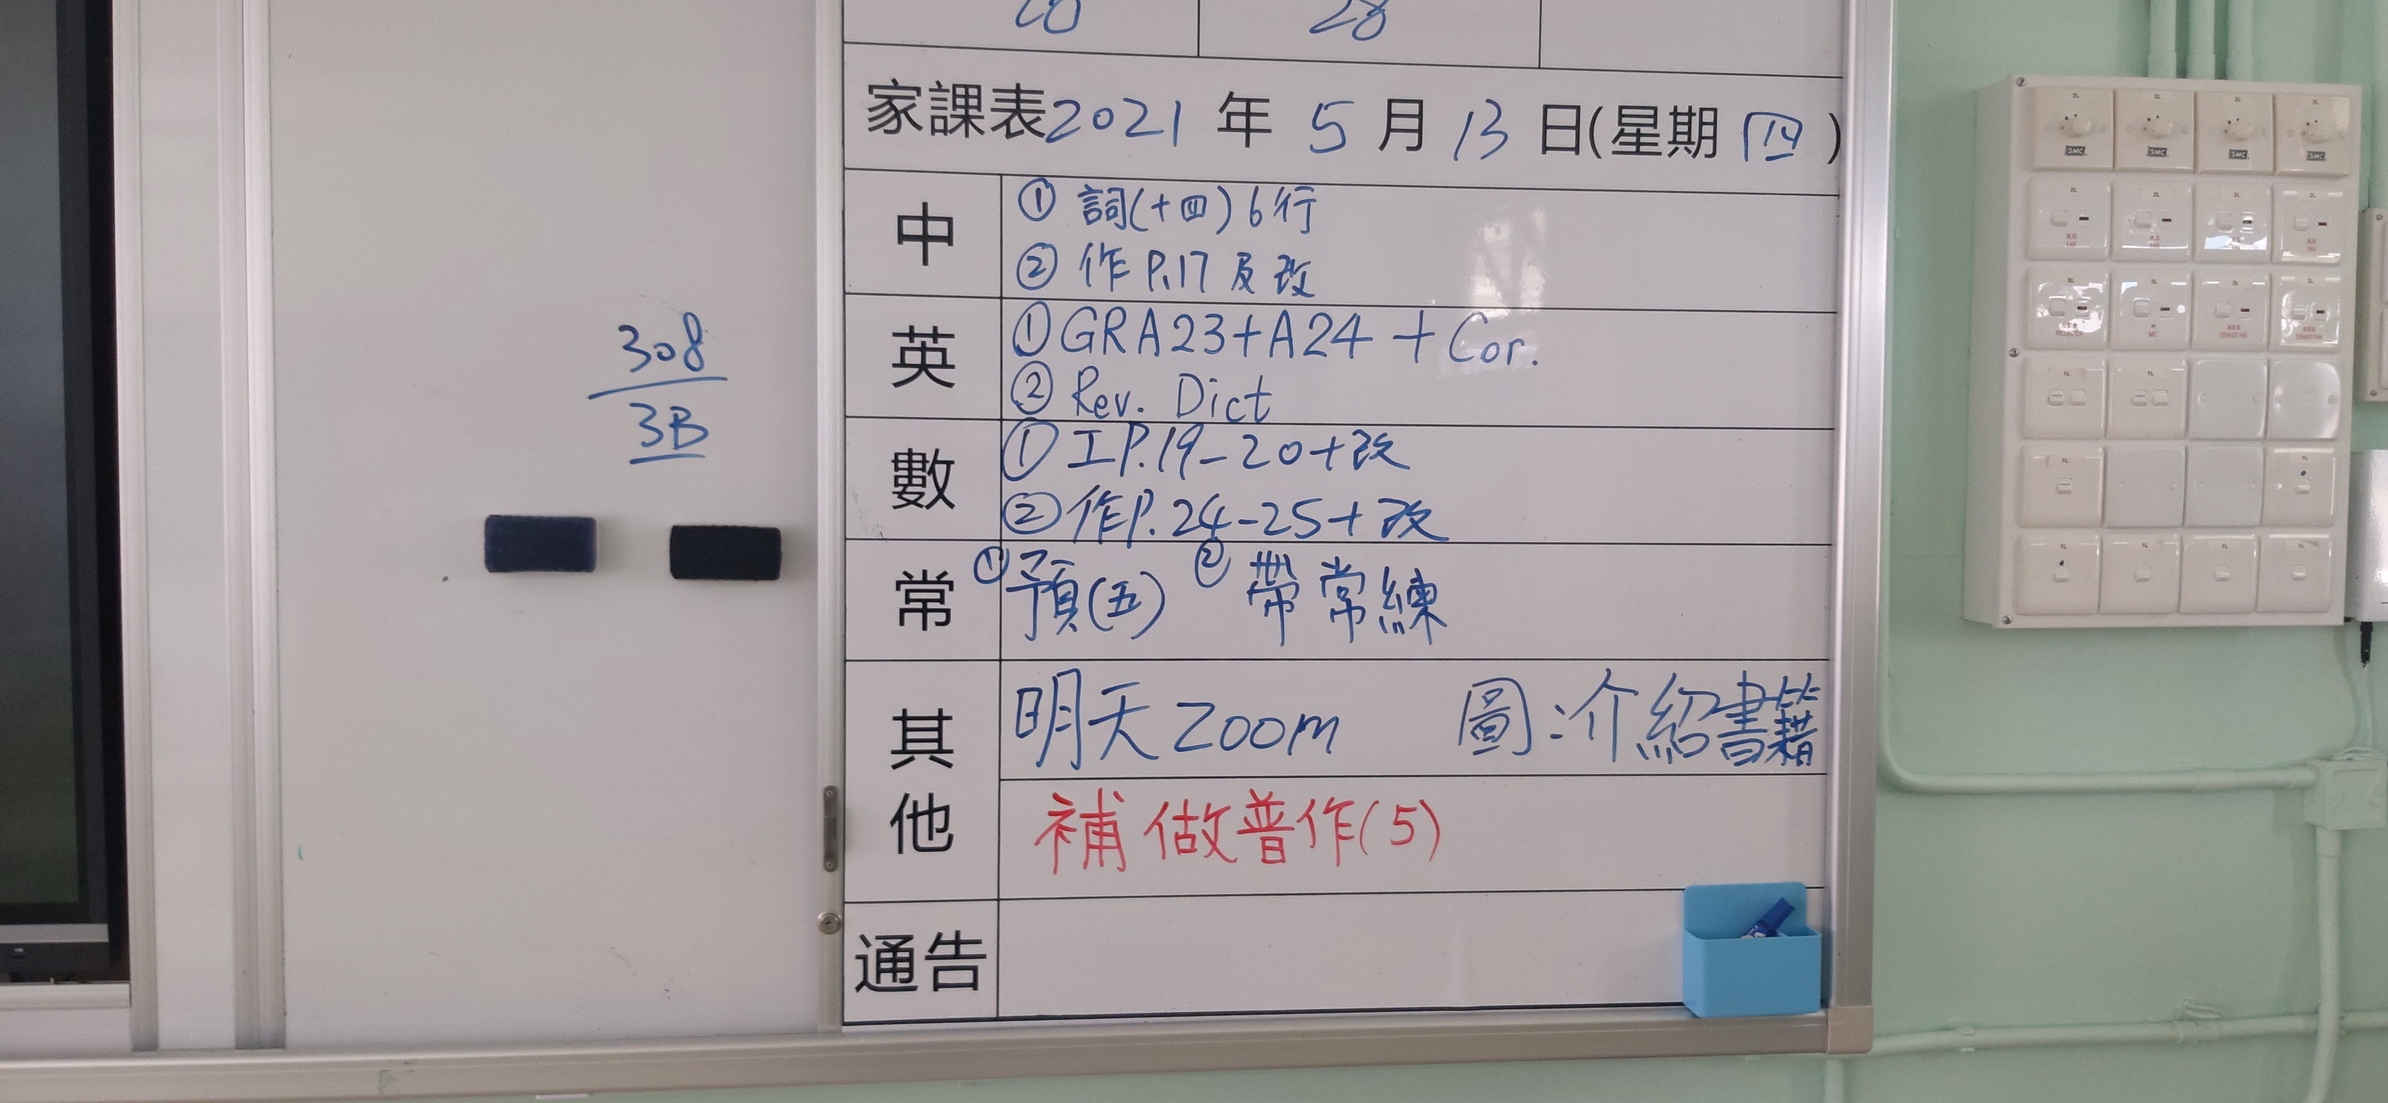 28
家課表2021年5月13日(星期四)
中
① 詞(十四)6行
② 作P.17及改
英
①GRA23+A24+Cor.
② Rev. Dict
數
①工P.19-20+改
②作P.24-25+改
常
①預(五) ②帶常練
其他
明天Zoom 圖:介紹書籍
補做普作(5)
通告
308
3B